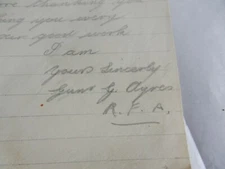 thanking you
you very
good work
I am
Yours Sincerely
Gunr G Ayres
R. F. A.